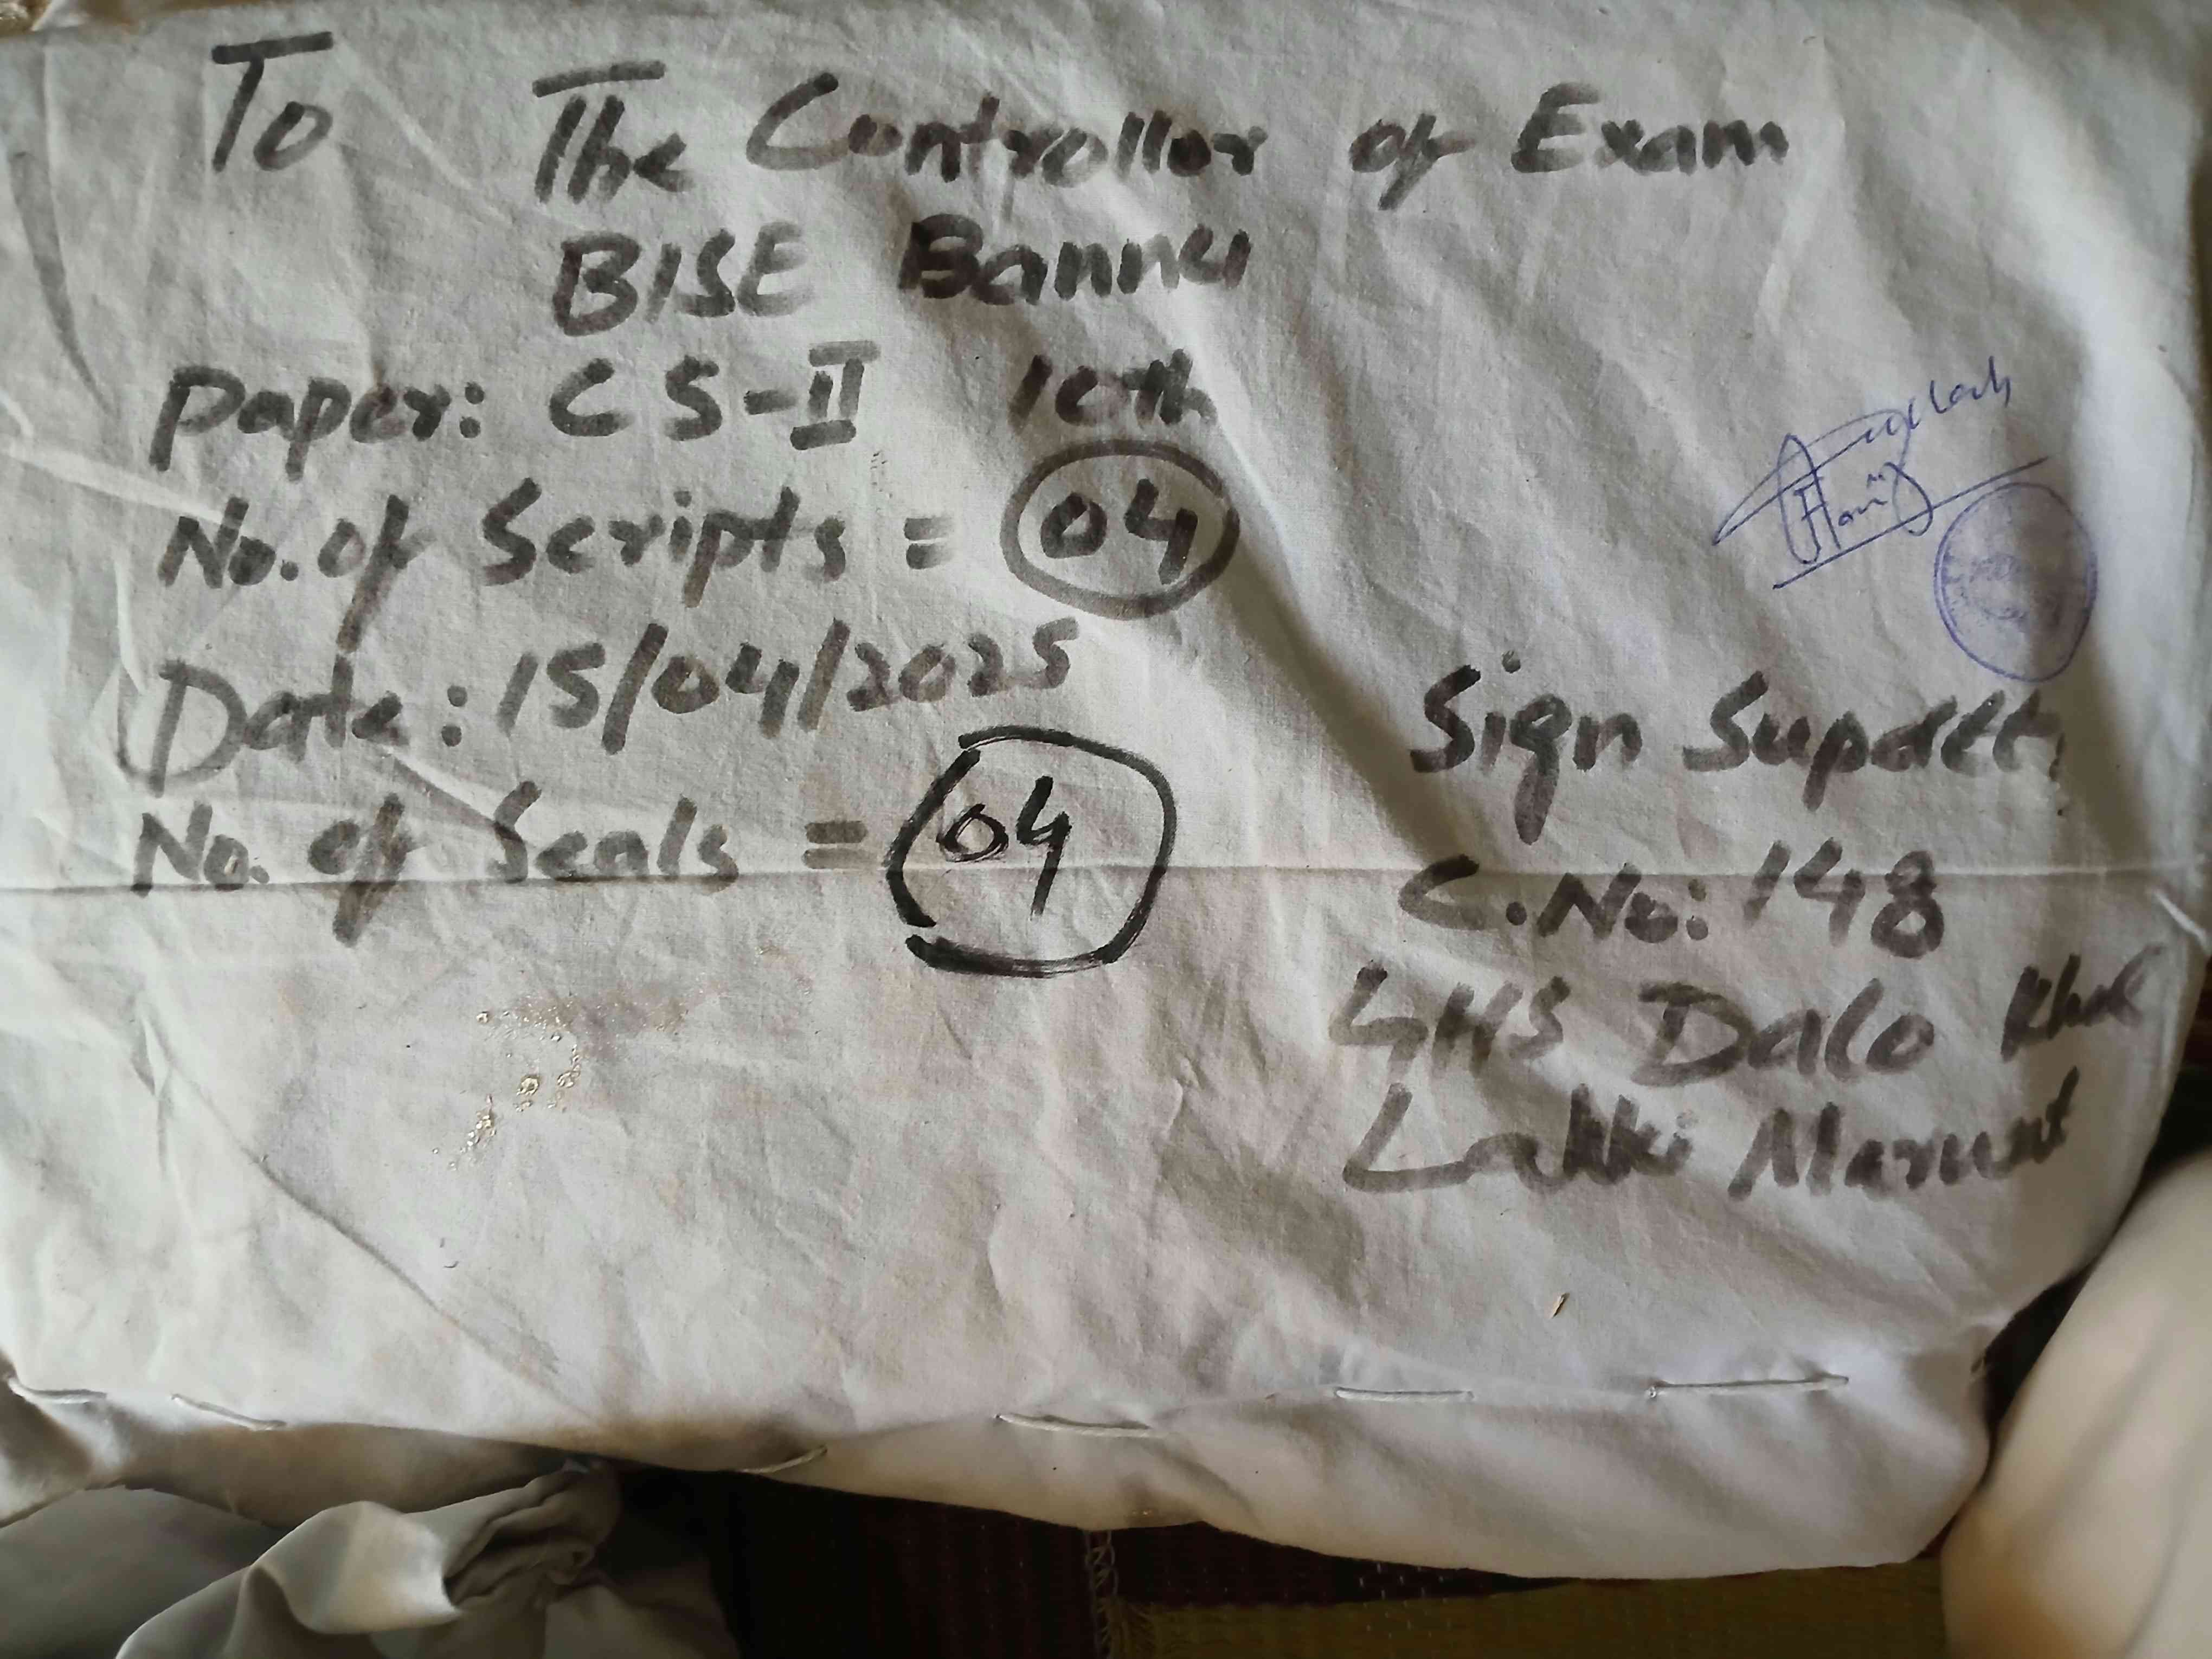 To The Controllor of Exam
BISE Bannu
Paper: CS-II 10th
No. of Scripts = 04
Date: 15/04/2025
No. of Seals = 04
Sign Supdett
C.No: 148
GHS Dalo Khel
Lakki Marwat